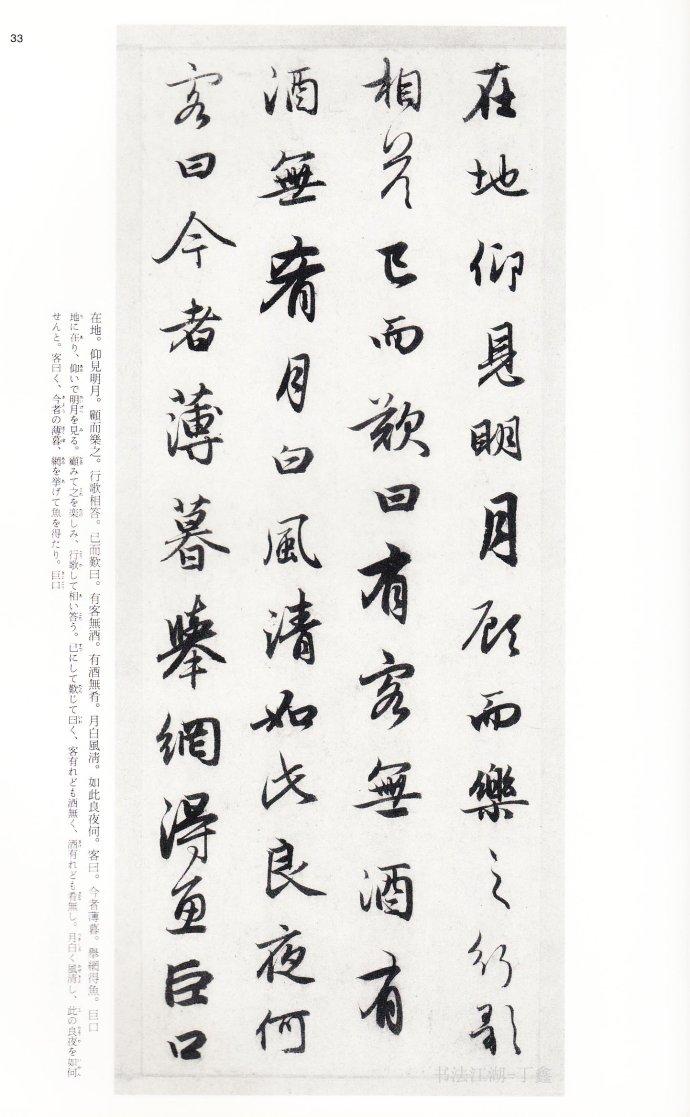 33
在地仰見明月顧而樂之行歌
相答已而歎曰有客無酒有
酒無肴月白風清如此良夜何
客曰今者薄暮舉網得魚巨口
在地。仰見明月。顧而樂之。行歌相答。已而歎曰。有客無酒。有酒無肴。月白風清。如此良夜何。客曰。今者薄暮。舉網得魚。巨口
地に在り、仰いで明月を見る。顧みて之を楽しみ、行歌して相い答う。已にして歎じて曰く、客有れども酒無く、酒有れども肴無し。月白く風清し、此の良夜を如何
せんと。客曰く、今者の薄暮、網を挙げて魚を得たり。巨口
书法江湖-丁鑫